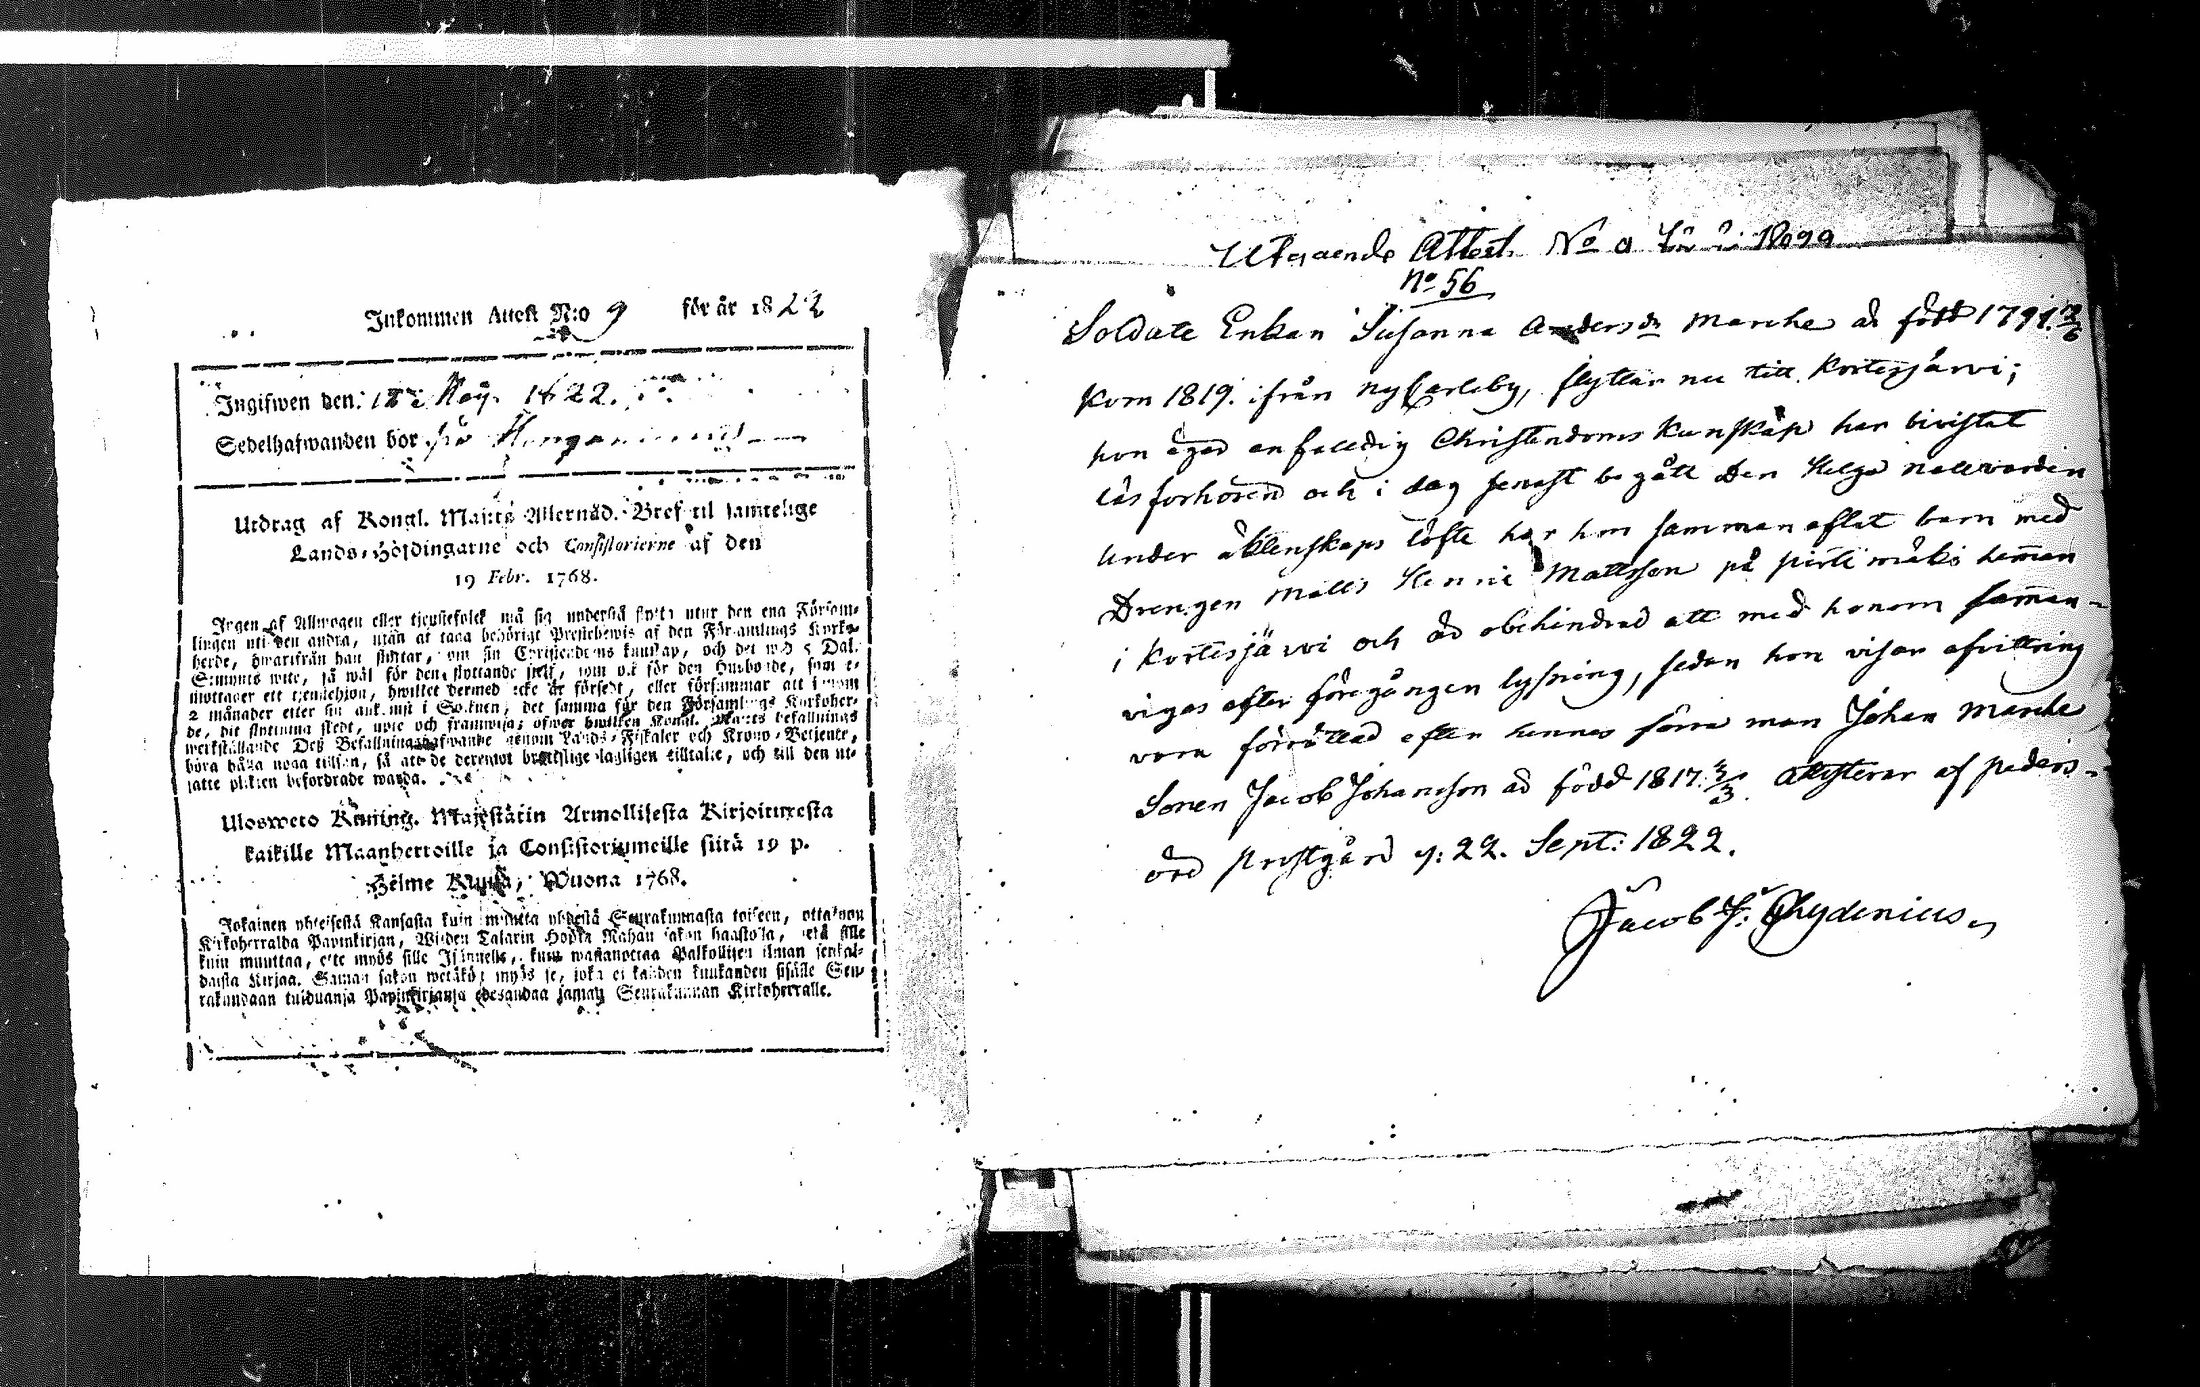 Inkommen Attest N:o 9 för år 1822
Ingifwen den: 12 Maÿ. 1822.
Sedelhafwanden bor
Utdrag af Kongl. Maj:ts Allernåd. Bref til samtelige
Lands-Höfdingarne och Consistorierne af den
19 Febr. 1768.
Ingen af Allmogen eller tjenstefolck må sig understå flytta utur den ena Försam-
lingen uti den andra, utan at taga behörigt Prestebewis af den Församlings Kyrko-
herde, hwarifrån han flyttar, om sin Christendoms kunskap, och det wid 5 Dal.
Silfmynts wite, så wäl för den flyttande sjelf, som ock för den Husbonde, som e-
mottager ett tjenstehjon, hwilket dermed icke är försedt, eller försummar att innom
2 månader efter sin ankomst i Soknen, det samma för den Församlings Kyrkoher-
de, dit flyttning skedt, upte och framwisa; öfwer hwilken Kongl. Maj:ts befallnings
werkställande Deß Befallningshafwande genom Lands-Fiskaler och Krono-Betjente,
böra hålla noga tillsyn, så att de deremot brottslige lagligen tilltalte, och till den ut-
satte plikten befordrade warda.
Ulosweto Kuning. Majestätin Armollisesta Kirjoituxesta
kaikille Maanhertoille ja Consistoriumeille siitä 19 p.
Helme Kuusa, Wuona 1768.
Jokainen yhteisestä Kansasta kuin muutta yhdestä Seurakunnasta toiseen, ottakoon
Kirkoherralda Papinkirjan, Wijden Talarin Hopia Rahan sakon haastolla, sekä sille
kuin muuttaa, ette myös sille Isännelle, kuin wastanottaa Palkollisen ilman senkal-
daista Kirjaa. Saman sakon wetäkön myös se, joka ei kahden kuukauden sisälle Seu-
rakundaan tulduansa Papinkirjansa edesandaa saman Seurakunnan Kirkoherralle.
Utgaende Attest No
No 56
Soldate Enkan Susanna Andersdr Marche är född 1791. 7/6
kom 1819. ifrån nyCarleby, flyttar nu till Kortesjärvi;
hon äger enfalldig Christendoms kunskap har bivistat
läsforhören och i dag senast begått den Helga nattvarden
under äktenskaps löfte har hon sammanaflat barn med
Drengen Matts Henric Mattsson på pirtimäki heman
i Kortesjärvi och är obehindrad att med honom saman-
vigas efter föregången lysning, sedan hon visar afvittring
vara förrättad efter hennes förra man Johan Marche
Sonen Jacob Johansson är född 1817. 4/3. Attesterar af peders-
öre prestgård d: 22. Sept: 1822.
Jacob J: Chydenius